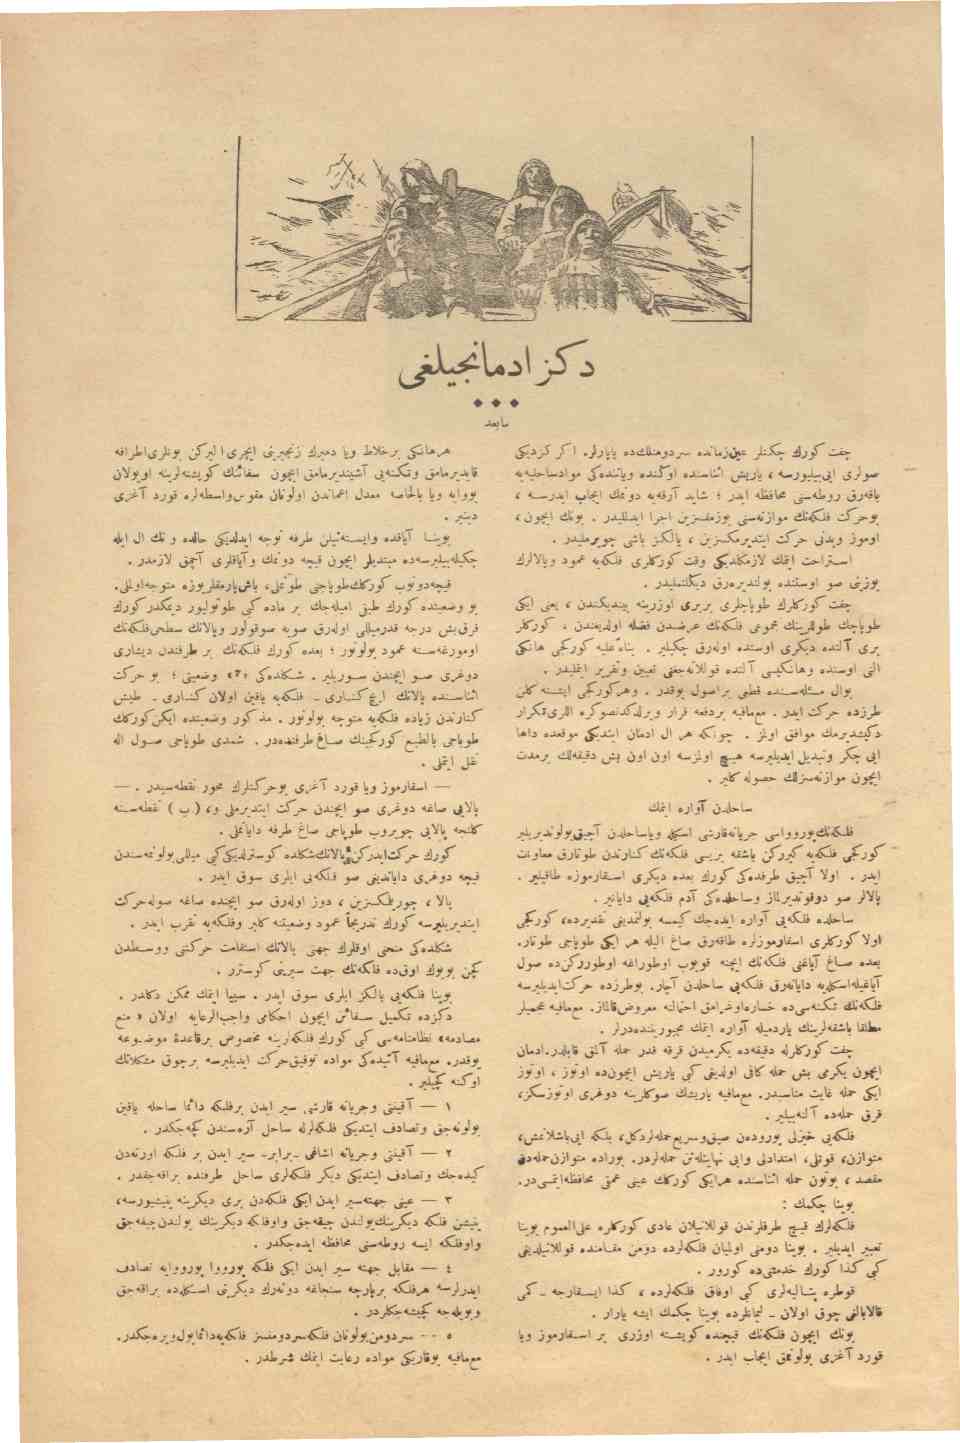 دكز ادمانجيلغى
مابعد
چفت كورك چكنلر عين زمانده سردومنلك ده ياپارلر. اكر كزديكى
صولرى ايى بيليورسه ، ياريش اثناسنده اوكنده وياننده كى مواد ساحليه يه
باقه رق روطه سنى محافظه ايدر ؛ شايد آرقه يه دونمك ايجاب ايدرسه ،
بوحركت فلكه نك موازنه سنى بوزمقسزين اجرا ايدلليدر . بونك ايچون ،
اوموز وبدنى حركت ايتديرمكسزين ، يالكز باشى چويرمليدر .
استراحت ايتمك لازمكلديكى وقت كوركلرى فلكه يه عمود وپالالرك
يوزينى صو اوستنده بولنديره رق ديكلنمليدر .
چفت كوركلرك طوپاچلرى بربرى اوزرينه بينديكندن ، يعنى ايكى
طوپاچك طوللرينك مجموعى فلكه نك عرضندن فضله اولديغندن ، كوركلر
برى آلتنده ديكرى اوستنده اوله رق چكيلير . بناءً عليه كوركجى هانكى
الى اوستنده وهانكيسى آلتنده قوللانه جغنى تعيين وتقرير ايتمليدر .
بوال مسئله سنده قطعى براصول يوقدر . وهركوركجى ايشنه كلن
طرزده حركت ايدر . مع مافيه بردفعه قرار ويرلدكدنصوكره اللرى تكرار
دكيشديرمك موافق اولمز . چونكه هر ال ادمان ايتديكى موقعده داها
ايى چكر وتبديل ايديليرسه هيچ اولمزسه اون اون بش دقيقه لك برمدت
ايچون موازنه سزلك حصوله كلير .
ساحلدن آواره ايتمك
فلكه نك پورواسى جريانه قارشى اسكله وياساحلدن آچيق بولونديريلير
كوركجى فلكه يه كيركن باشقه بريسى فلكه نك كنارندن طوتارق معاونت
ايدر . اولا آچيق طرفده كى كورك بعده ديكرى اسقارموزه طاقيلير .
پالالر صو دوقونديرلماز وساحلده كى آدم فلكه يى داياتير .
ساحلده فلكه يى آواره ايده جك كيمسه بولنمديغى تقديرده ، كوركجى
اولا كوركلرى اسقارموزلره طاقه رق صاغ اليله هر ايكى طوپاجى طوتار.
بعده صاغ آياغنى فلكه نك ايچنه قويوب اوطوراغه اوطورركن ده صول
آياغيله اسكله يه دايانه رق فلكه يى ساحلدن آچار. بوطرزده حركت ايديليرسه
فلكه نك تكنه سى ده خساره اوغرامق احتمالنه معروض قالماز. مع مافيه عجميلر
مطلقا باشقه لرينك يارديميله آواره ايتمك مجبوريتنده درلر .
چفت كوركلرله دقيقه ده يكرميدن قرقه قدر حمله آلمق قابلدر. ادمان
ايچون يكرمى بش حمله كافى اولديغى كبى ياريش ايچون ده اوتوز ، اوتوز
ايكى حمله غايت مناسبدر. مع مافيه ياريشك صوكلرينه دوغرى اوتوزسكز،
قرق حمله ده آلنه بيلير .
فلكه يى خيزلى يوروده ن صيق وسريع حمله لردكل، بلكه ايى باشلانمش،
متوازن، قوتلى ، امتدادلى وايى نهايتلنه ن حمله لردر. بوراده متوازن حمله دن
مقصد ، بوتون حمله اثناسنده هرايكى كوركك عينى عمقى محافظه ايتمسى در.
بوينا چكمك :
فلكه لرك قيچ طرفلرندن قوللانيلان عادى كوركلره على العموم بوينا
تعبير ايديلير . بوينا دومنى اولميان فلكه لرده دومن مقامنده قوللانيلديغى
كبى كذا كورك خدمتى ده كورور .
قوطره پتاليه لرى كبى اوفاق فلكه لرده ، كذا ايسقارجه ـ كمى
قالابالغى چوق اولان ـ ليمانلرده بوينا چكمك ايشه يارار .
بونك ايچون فلكه نك قيچنده كوپشته اوزرى بر اسقارموز ويا
قورد آغزى بولونمق ايجاب ايدر .
هرهانكى برخلاط ويا دميرك زنجيرينى ايچرى آليركن بونلرى اطرافه
قايديرمامق وتكنه يى آشينديرمامق ايچون سفائنك كوپشته لرينه اويولان
يووايه ويا بالخاصه معدن اعماندن اولونان مقوس واسطه لره قورد آغزى
دينير .
بوينا آياقده وايسته نيلن طرفه توجه ايدلديكى حالده و تك ال ايله
چكيله بيليرسه ده مبتديلر ايچون قيچه دونمك وآياقلرى آچمق لازمدر .
قيچه دونوب كوركك طوپاجنى طوتملى، باش پارمقلر يوزه متوجه اولملى.
بو وضعيتده كورك طبق اميله جك بر ماده كبى طوتوليور ديمكدر كورك
قرق بش درجه قدرميللى اوله رق صويه صوقولور وپالانك سطحى فلكه نك
اومورغه سنه عمود بولونور ؛ بعده كورك فلكه نك بر طرفندن ديشارى
دوغرى صو ايچندن سوريلير . شكلده كى «٣» وضعيتى ؛ بو حركت
اثناسنده پالانك ارج كنارى ـ فلكه يه ياقين اولان كنارى ـ طيش
كنارندن زياده فلكه يه متوجه بولونور . مذكور وضعيتده ايكن كوركك
طوپاجى بالطبع كوركجينك صاغ طرفنده در . شمدى طوپاجى صول اله
نقل ايتملى .
— اسقارموز ويا قورد آغزى بوحركتلرك محور نقطه سيدر . —
پالايى صاغه دوغرى صو ايچندن حركت ايتديرملى و، ( ب ) نقطه سنه
كلنجه پالايى چويروب طوپاجى صاغ طرفه داياتملى .
كورك حركت ايدركن پالانك شكلده كوسترلديكى كبى ميللى بولونمه سندن
قيچه دوغرى داياتديغى صو فلكه يى ايلرى سوق ايدر .
پالا ، چورفلكسزين ، دوز اوله رق صو ايچنده صاغه صوله حركت
ايتديريليرسه كورك تدريجاً عمود وضعيتنه كلير وفلكه يه تقرب ايدر.
شكلده كى منحنى اوقلرك جهتى پالانك استقامت حركتنى ووسطدن
كچن بويوك اوق ده فلكه نك جهت سيرينى كوسترر .
بوينا فلكه يى يالكز ايلرى سوق ايدر . سييا ايتمك ممكن دكلدر .
دكزده تكميل سفائن ايچون احكامى واجب الرعايه اولان « منع
مصادمه» نظامنامه سى كبى كورك فلكه لرينه مخصوص برقاعدهٔ موضوعه
يوقدر. مع مافيه آتيده كى مواده توفيق حركت ايديليرسه برچوق مشكلاتك
اوكنه كچيلير .
١ — آقينتى وجريانه قارشى سير ايدن برفلكه دائما ساحله ياقين
بولونه جق وتصادف ايتديكى فلكه لرله ساحل آره سندن كچه جكدر .
٢ — آقينتى وجريانه اشاغى ـ برابر ـ سير ايدن بر فلكه اورته دن
كيده جك وتصادف ايتديكى ديكر فلكه لرى ساحل طرفنده براقه جقدر .
٣ — عينى جهته سير ايدن ايكى فلكه دن برى ديكرينه يتيشيورسه،
يتيشن فلكه ديكرينك يولندن چيقه جق واوفلكه ديكرينك يولندن چيقه جق
واوفلكه ايسه روطه سنى محافظه ايده جكدر .
٤ — مقابل جهته سير ايدن ايكى فلكه پورووا پوروايه تصادف
ايدرلرسه هرفلكه برپارچه سنجاغه دونه رك ديكرينى اسكله ده براقه جق
وبويله جه كچيشه جكلردر .
٥ — سردومن بولونان فلكه سردومنسز فلكه يه دائما يول ويره جكدر.
مع مافيه يوقاريكى مواده رعايت ايتمك شرطدر .